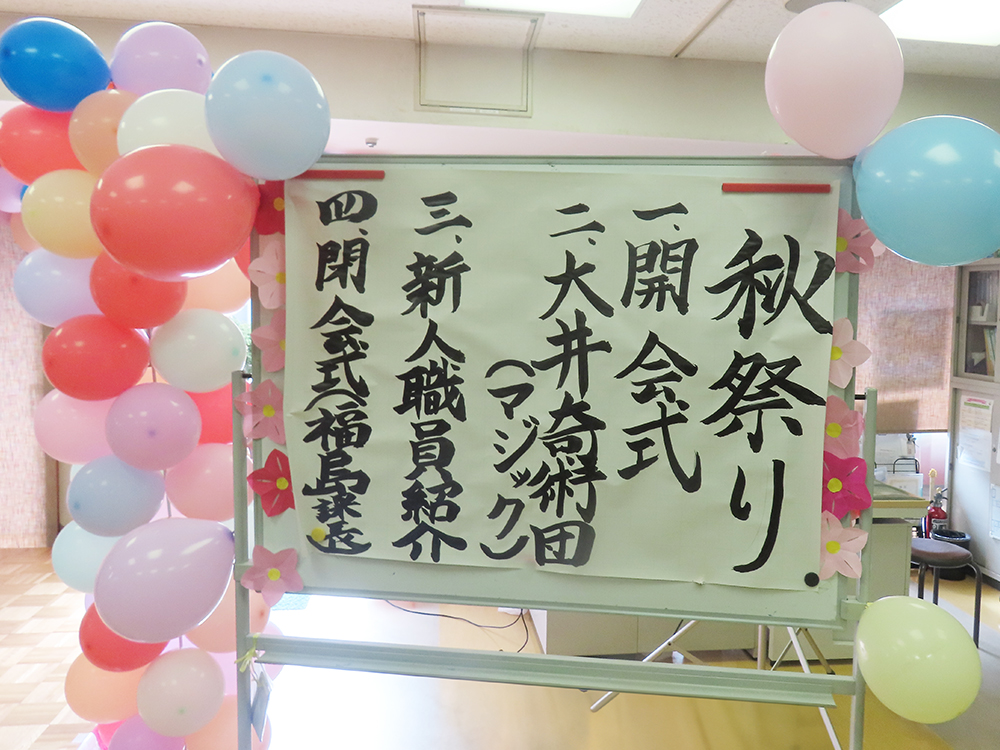 秋祭り
一、開会式
二、大井奇術団
（マジック）
三、新人職員紹介
四、閉会式（福島課長）